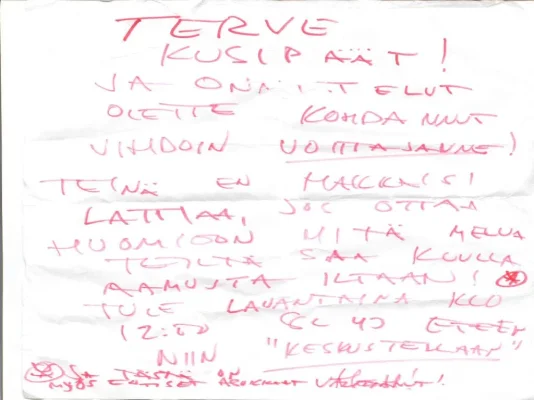 TERVE
KUSIPÄÄT!
JA ONNITTELUT
OLETTE KOHDANNUT
VIHDOIN VOITTAJANNE!
TEINÄ EN HAKKAISI
LATTIAA, JOS OTTAA
HUOMIOON MITÄ MELUA
TEILTÄ SAA KUULLA
AAMUSTA ILTAAN!
TULE LAUANTAINA KLO
12:00 ETEEN
NIIN "KESKUSTELLAAN"
JA TÄSTÄ ON
MYÖS ENTISET ASUKKAAT